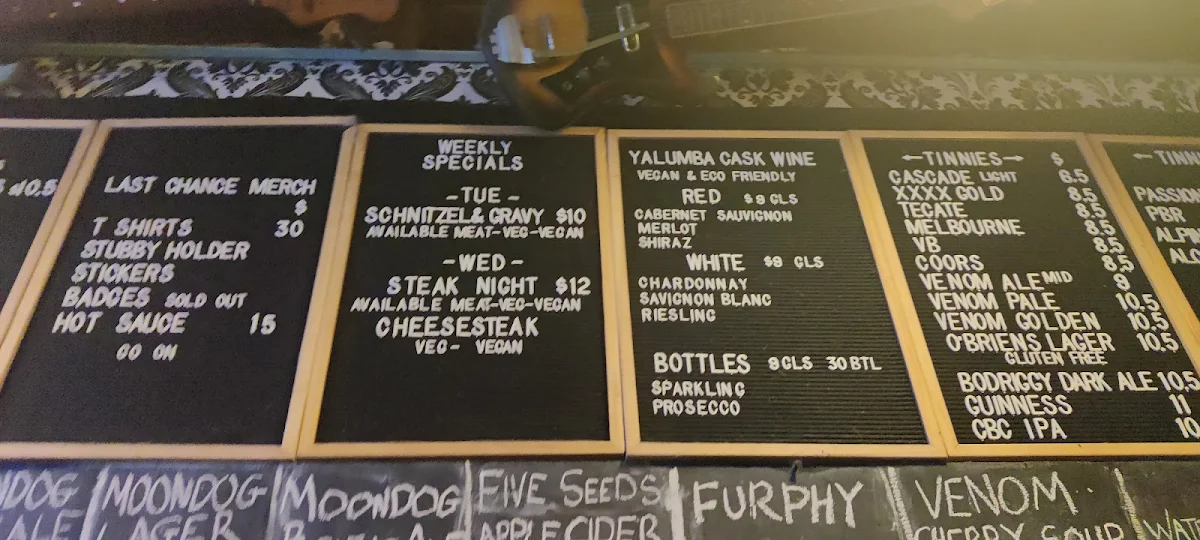 LAST CHANCE MERCH
$
T SHIRTS 30
STUBBY HOLDER
STICKERS
BADGES SOLD OUT
HOT SAUCE 15
GO ON
WEEKLY
SPECIALS
-TUE-
SCHNITZEL& GRAVY $10
AVAILABLE MEAT-VEG-VEGAN
-WED-
STEAK NIGHT $12
AVAILABLE MEAT-VEG-VEGAN
CHEESESTEAK
VEG- VEGAN
YALUMBA CASK WINE
VEGAN & ECO FRIENDLY
RED $9 GLS
CABERNET SAUVIGNON
MERLOT
SHIRAZ
WHITE $9 GLS
CHARDONNAY
SAVIGNON BLANC
RIESLING
BOTTLES 9GLS 30BTL
SPARKLING
PROSECCO
←TINNIES→ $
CASCADE LIGHT 8.5
XXXX GOLD 8.5
TECATE 8.5
MELBOURNE 8.5
VB 8.5
COORS 8.5
VENOM ALE MID 9
VENOM PALE 10.5
VENOM GOLDEN 10.5
O'BRIENS LAGER 10.5
GLUTEN FREE
BODRIGGY DARK ALE 10.5
GUINNESS 11
CBC IPA 10
← TINN
PASSION
PBR
ALPIN
ALC
MOONDOG
LAGER
MOONDOG
FIVE SEEDS
APPLE CIDER
FURPHY
VENOM
CHERRY SOUR